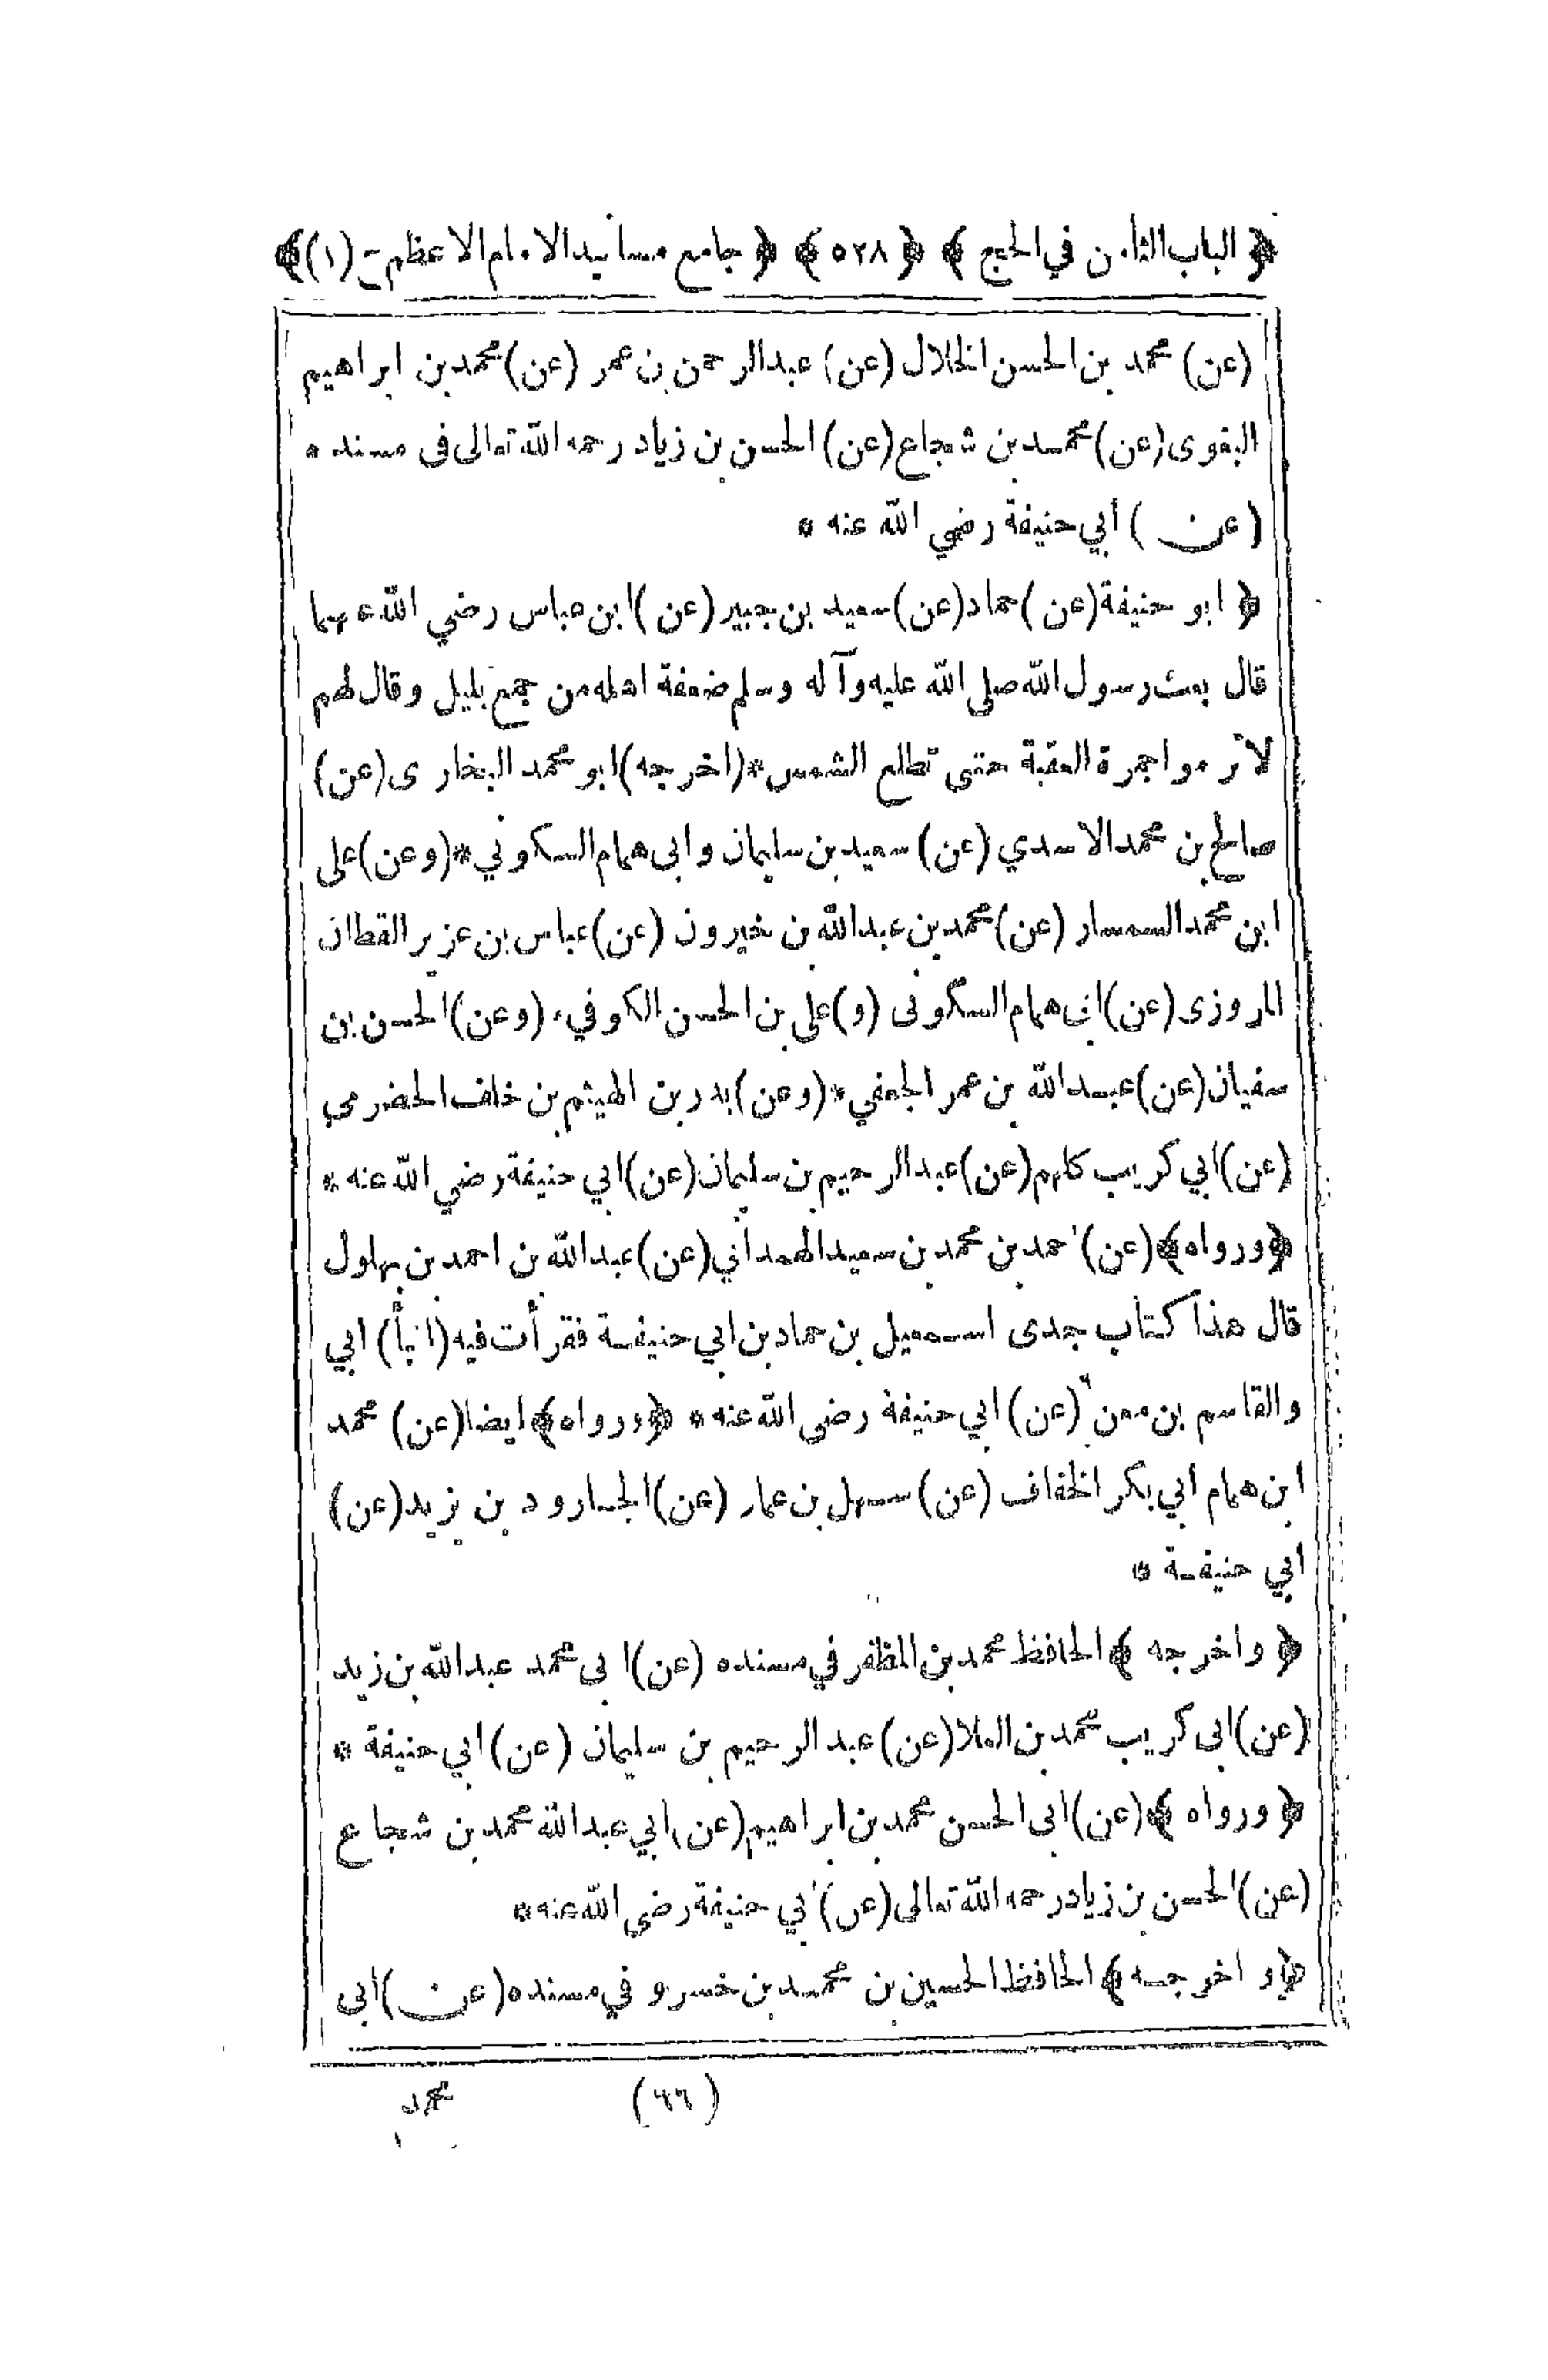 ﴿ الباب الثامن في الحج ﴾ ﴿ ٥٢٨ ﴾ ﴿ جامع مسانيد الامام الاعظم ج (١) ﴾
(عن) محمد بن الحسن الخلال (عن) عبد الرحمن بن عمر (عن) محمد بن ابراهيم
البغوى (عن) محمد بن شجاع (عن) الحسن بن زياد رحمه الله تعالى فى مسنده *
(عن) أبي حنيفة رضي الله عنه *
﴿ ابو حنيفة (عن) حماد (عن) سعيد بن جبير (عن) ابن عباس رضي الله عنهما
قال بعث رسول الله صلى الله عليه وآله وسلم ضعفة اهله من جمع بليل وقال لهم
لا ترموا جمرة العقبة حتى تطلع الشمس * (اخرجه) ابو محمد البخارى (عن)
صالح بن محمد الاسدي (عن) سعيد بن سليمان وابى همام السكوني * (وعن) على
ابن محمد السمسار (عن) محمد بن عبد الله بن خيرون (عن) عباس بن عزير القطان
المروزى (عن) ابى همام السكونى (و) على بن الحسن الكوفي * (وعن) الحسن بن
سفيان (عن) عبد الله بن عمر الجعفي * (وعن) بدر بن الهيثم بن خلف الحضرمي
(عن) ابي كريب كلهم (عن) عبد الرحيم بن سليمان (عن) ابي حنيفة رضي الله عنه *
﴿ ورواه ﴾ (عن) احمد بن محمد بن سعيد الهمداني (عن) عبد الله بن احمد بن بهلول
قال هذا كتاب جدى اسمعيل بن حماد بن ابي حنيفة فقرأت فيه (انبأ) ابي
والقاسم بن معن (عن) ابي حنيفة رضى الله عنه * ﴿ ورواه ﴾ ايضا (عن) محمد
ابن همام أبي بكر الخفاف (عن) سهل بن عمار (عن) الجارود بن يزيد (عن)
ابي حنيفة *
﴿ واخرجه ﴾ الحافظ محمد بن المظفر في مسنده (عن) ابى محمد عبد الله بن زيد
(عن) ابى كريب محمد بن العلا (عن) عبد الرحيم بن سليمان (عن) ابي حنيفة *
﴿ ورواه ﴾ (عن) ابى الحسن محمد بن ابراهيم (عن) ابي عبد الله محمد بن شجاع
(عن) الحسن بن زياد رحمه الله تعالى (عن) ابي حنيفة رضى الله عنه *
﴿ واخرجه ﴾ الحافظ الحسين بن محمد بن خسرو في مسنده (عن) ابى
(٦٦) محمد